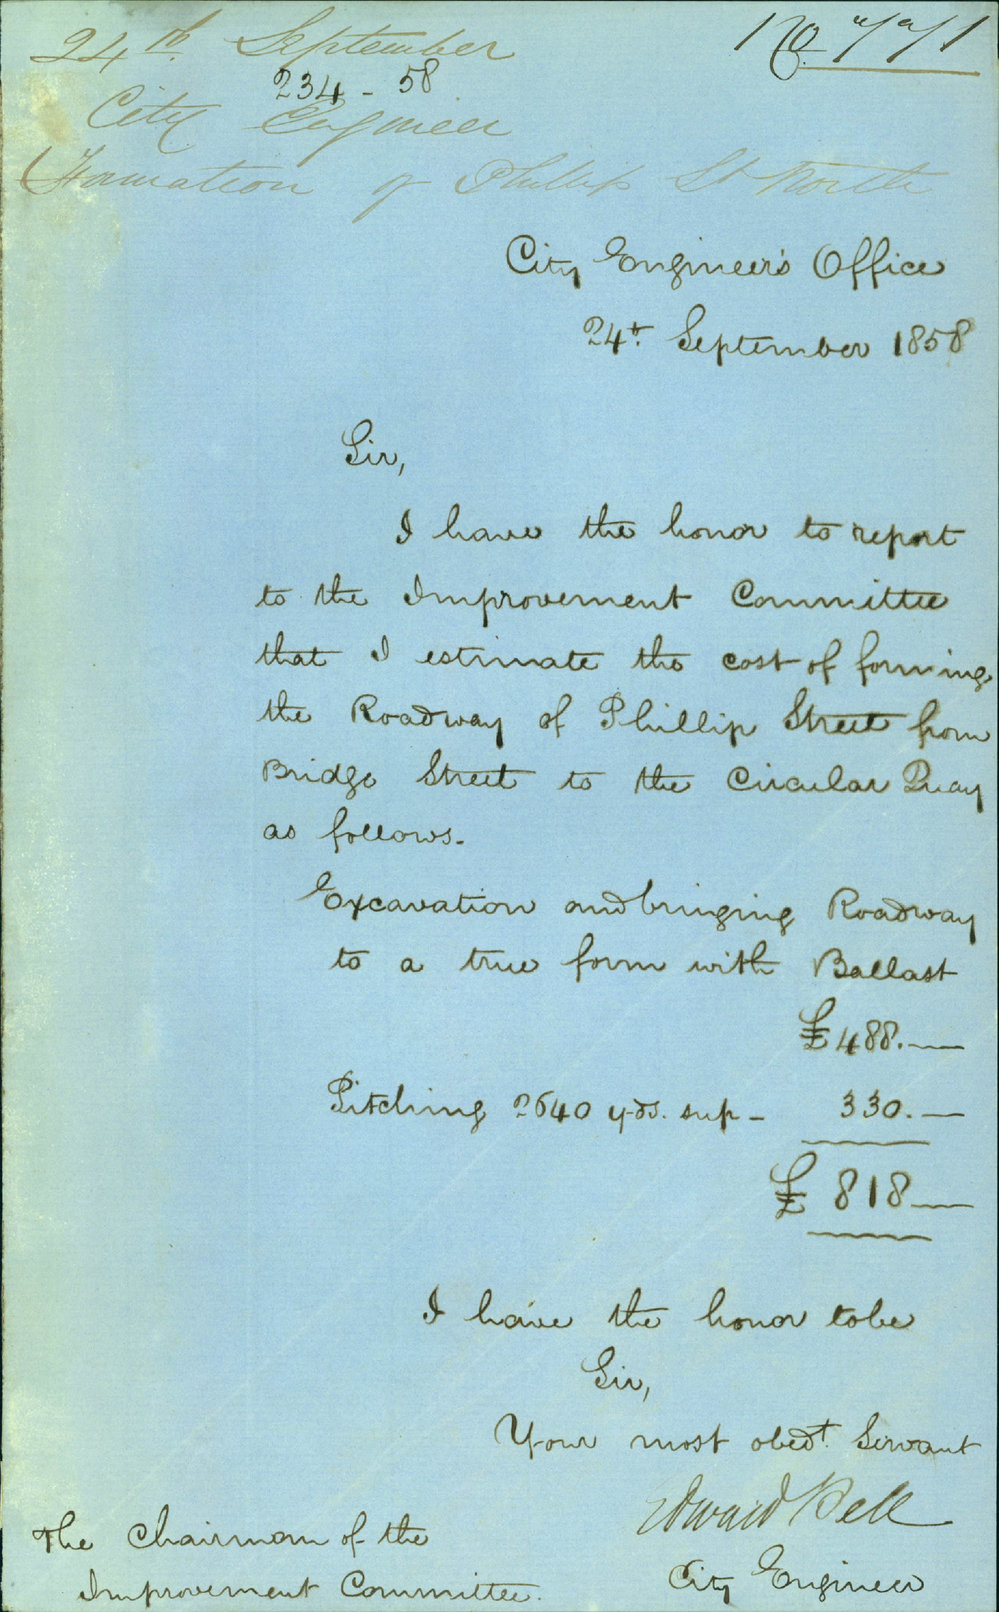 24th September
234 - 58
City Engineer
Formation of Phillip St North
City Engineer's Office
24th September 1858
Sir,
I have the honor to report
to the Improvement Committee
that I estimate the cost of forming
the Roadway of Phillip Street from
Bridge Street to the Circular Quay
as follows.
Excavation and bringing Roadway
to a true form with Ballast
£488.—
Pitching 2640 yds. sup - 330.—
£ 818—
I have the honor to be
Sir,
Your most obedt. Servant
Edward Bell
City Engineer
The Chairman of the
Improvement Committee.